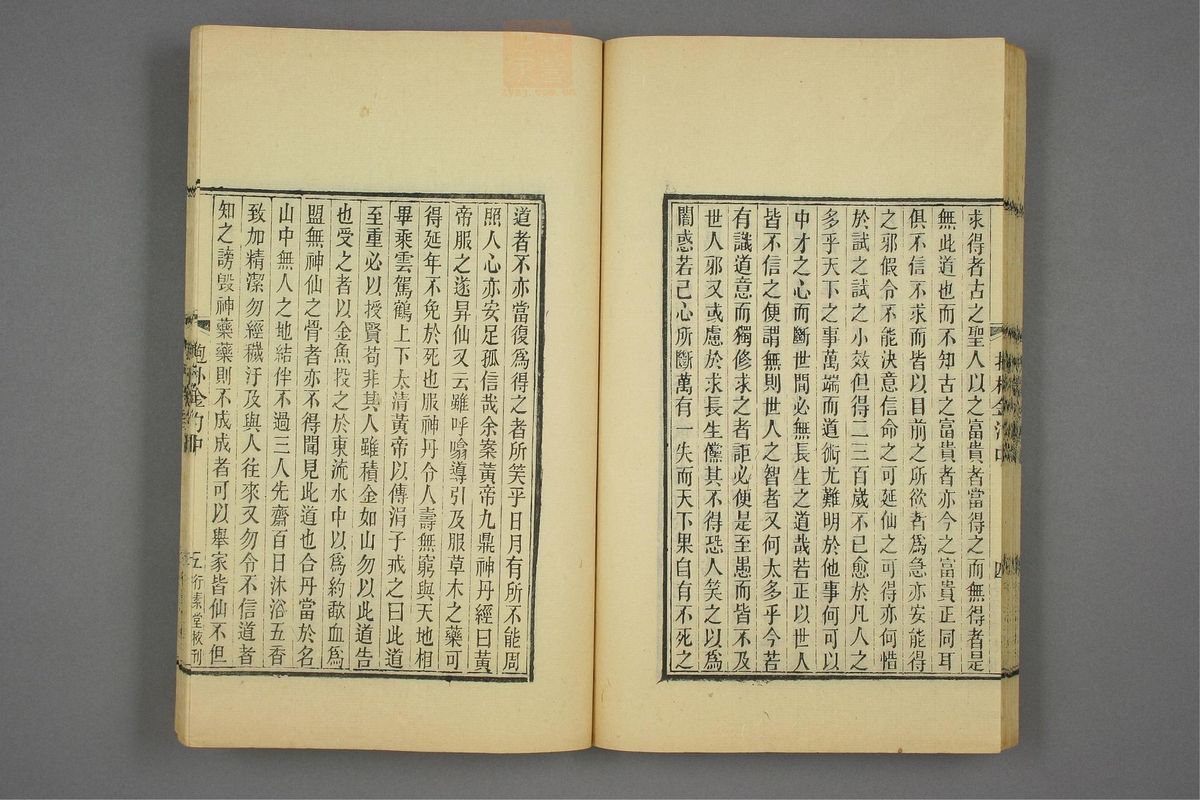 求得者古之聖人以之富貴者當得之而無得者是
無此道也而不知古之富貴者亦今之富貴正同耳
俱不信不求而皆以目前之所欲者為急亦安能得
之邪假令不能決意信命之可延仙之可得亦何惜
於試之試之小效但得二三百歲不已愈於凡人之
多乎天下之事萬端而道術尤難明於他事何可以
中才之心而斷世間必無長生之道哉若正以世人
皆不信之便謂無則世人之智者又何太多乎今若
有識道意而獨修求之者詎必便是至愚而皆不及
世人邪又或慮於求長生儻其不得恐人笑之以為
闇惑若己心所斷萬有一失而天下果自有不死之
四
道者不亦當復為得之者所笑乎日月有所不能周
照人心亦安足孤信哉余案黃帝九鼎神丹經曰黃
帝服之遂昇仙又云雖呼噏導引及服草木之藥可
得延年不免於死也服神丹令人壽無窮與天地相
畢乘雲駕鶴上下太清黃帝以傳涓子戒之曰此道
至重必以授賢苟非其人雖積金如山勿以此道告
也受之者以金魚投之於東流水中以為約歃血為
盟無神仙之骨者亦不得聞見此道也合丹當於名
山中無人之地結伴不過三人先齋百日沐浴五香
致加精潔勿經穢汙及與人往來又勿令不信道者
知之謗毀神藥藥則不成成者可以舉家皆仙不但
五行素堂校刊